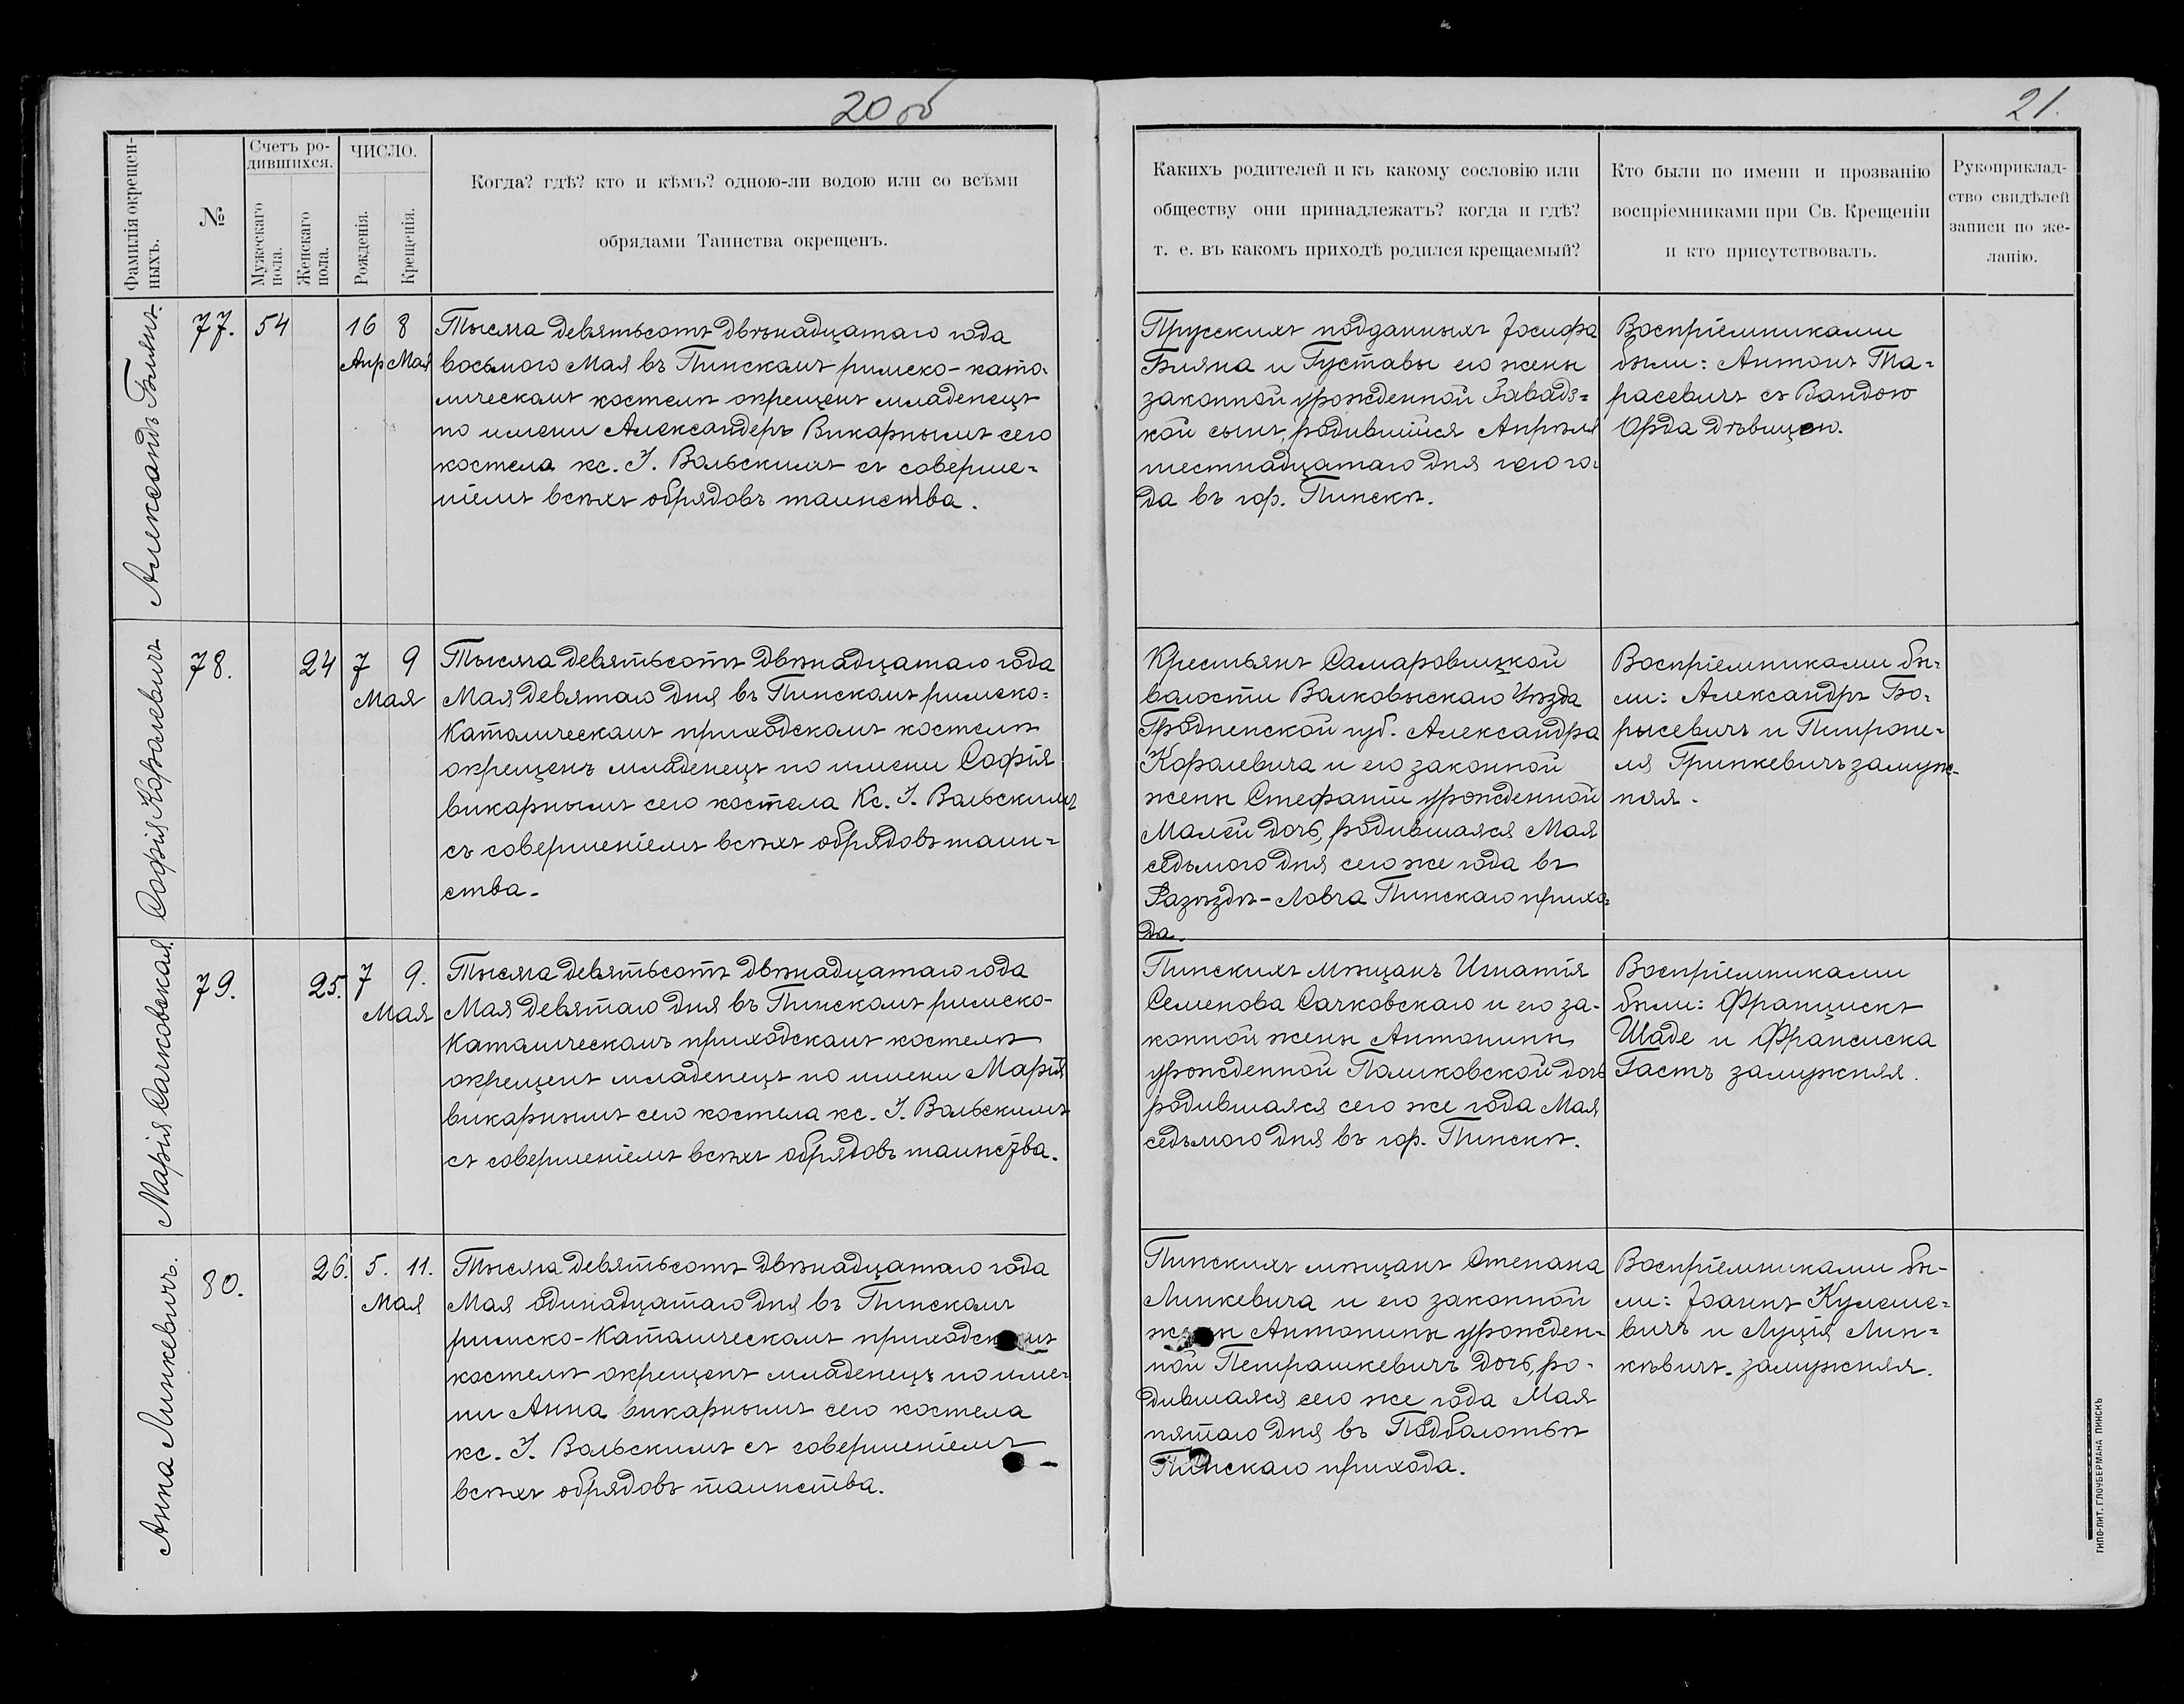 20 об
21.
Фамилія окрещен-
ныхъ.
№
Счетъ ро-
дившихся.
Мужескаго
пола.
Женскаго
пола.
ЧИСЛО.
Рожденія.
Крещенія.
Когда? гдѣ? кто и кѣмъ? одною-ли водою или со всѣми
обрядами Таинства окрещенъ.
Какихъ родителей и къ какому сословію или
обществу они принадлежатъ? когда и гдѣ?
т. е. въ какомъ приходѣ родился крещаемый?
Кто были по имени и прозванію
воспріемниками при Св. Крещеніи
и кто присутствовалъ.
Рукоприклад-
ство свидѣлей
записи по же-
ланію.
Александъ Билянъ.
77.
54
16 8
Апр Мая
Тысяча девятьсотъ двѣнадцатаго года
восьмого Мая въ Пинскомъ римско-като-
лическомъ костелѣ окрещенъ младенецъ
по имени Александеръ Викарнымъ сего
костела кс. І. Вольскимъ съ соверше=
ніемъ всѣхъ обрядовъ таинства.
Прусскихъ подданныхъ Іосифа
Биляна и Густавы его жены
законной урожденной Завадз=
кой сынъ, родившійся Апрѣля
шестнадцатаго дня сего го-
да въ гор. Пинскѣ.
Воспріемниками
были: Антонъ Та=
расевичъ съ Вандою
Орда дѣвицею.
Софія Королевичъ
78.
24
7 9
Мая
Тысяча девятьсотъ двѣнадцатаго года
Мая девятаго дня въ Пинскомъ римско=
Католическомъ приходскомъ костелѣ
окрещенъ младенецъ по имени Софія
викарнымъ сего костела Кс. І. Вольскимъ
съ совершеніемъ всѣхъ обрядовъ таин=
ства.
Крестьянъ Самаровицкой
волости Волковыскаго Уѣзда
Гродненской губ. Александра
Королевича и его законной
жены Стефаніи урожденной
Малей дочь, родившаяся Мая
седьмого дня сего же года въ
Разъѣздѣ-Ловча Пинскаго прихо-
да.
Воспріемниками бы-
ли: Александръ Бо-
рысевичъ и Петроне-
ля Гринкевичъ замуж-
няя.
Марія Сачковская.
79.
25.
7 9.
Мая
Тысяча девятьсотъ двѣнадцатаго года
Мая девятаго дня въ Пинскомъ римско-
Католическомъ приходскомъ костелѣ
окрещенъ младенецъ по имени Марія
викарнымъ сего костела кс. І. Вольскимъ
съ совершеніемъ всѣхъ обрядовъ таинства.
Пинскихъ мѣщанъ Игнатія
Семенова Сачковскаго и его за-
конной жены Антонины
урожденной Полиховской дочь
родившаяся сего же года Мая
седьмого дня въ гор. Пинскѣ.
Воспріемниками
были: Францискъ
Шаде и Франсиска
Гастъ замужняя.
Анна Линкевичъ.
80.
26.
5. 11.
Мая
Тысяча девятьсотъ двѣнадцатаго года
Мая одинадцатаго дня въ Пинскомъ
римско-Католическомъ приходскомъ
костелѣ окрещенъ младенецъ по име-
ни Анна викарнымъ сего костела
кс. І. Вольскимъ съ совершеніемъ
всѣхъ обрядовъ таинства.
Пинскихъ мѣщанъ Степана
Линкевича и его законной
жены Антонины урожден-
ной Петрашкевичъ дочь, ро-
дившаяся сего же года Мая
пятаго дня въ Подболотьѣ
Пинскаго прихода.
Воспріемниками бы-
ли: Іоаннъ Кулеше=
вичъ и Луція Лин=
кѣвичъ. замужняя.
ТИПО-ЛИТ. ГЛОУБЕРМАНА ПИНСКЪ